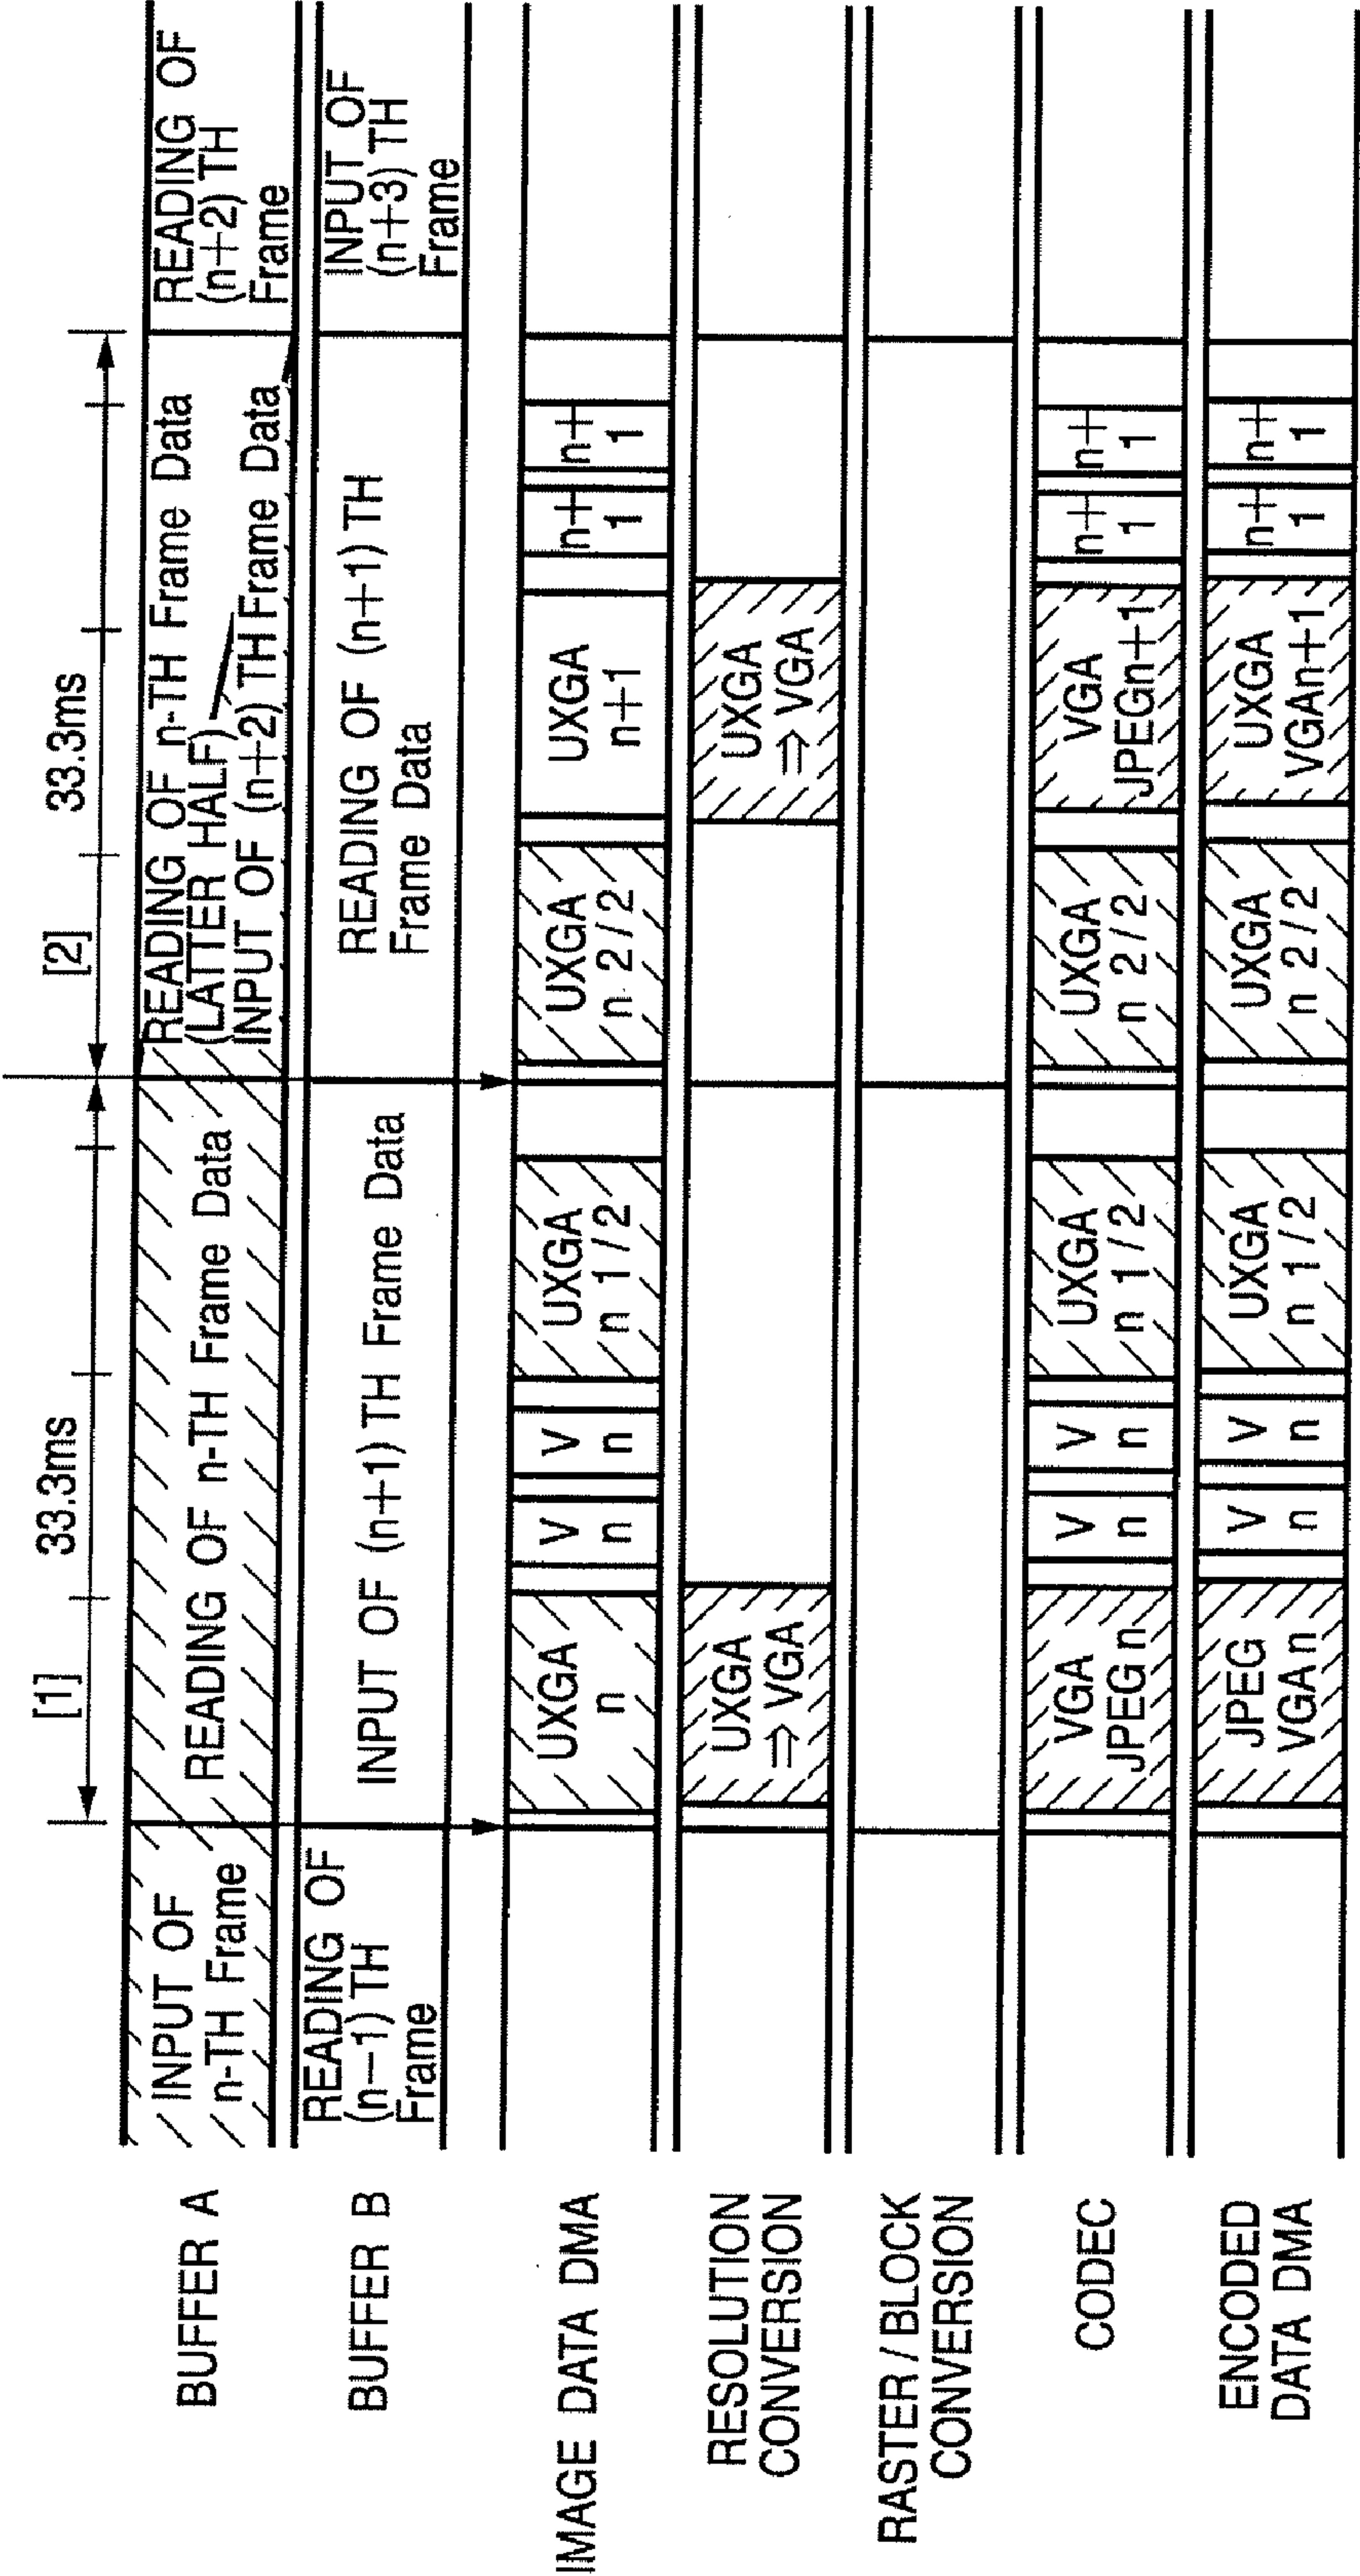 [1]
33.3ms
[2]
33.3ms
BUFFER A
INPUT OF
n-TH Frame
READING OF n-TH Frame Data
READING OF n-TH Frame Data
(LATTER HALF)
INPUT OF (n+2) TH Frame Data
READING OF
(n+2) TH
Frame
BUFFER B
READING OF
(n−1) TH
Frame
INPUT OF (n+1) TH Frame Data
READING OF (n+1) TH
Frame Data
INPUT OF
(n+3) TH
Frame
IMAGE DATA DMA
UXGA
n
V
n
V
n
UXGA
n 1/2
UXGA
n 2/2
UXGA
n+1
n+
1
n+
1
RESOLUTION
CONVERSION
UXGA
⇒ VGA
UXGA
⇒ VGA
RASTER/BLOCK
CONVERSION
CODEC
VGA
JPEG n
V
n
V
n
UXGA
n 1/2
UXGA
n 2/2
VGA
JPEGn+1
n+
1
n+
1
ENCODED
DATA DMA
JPEG
VGA n
V
n
V
n
UXGA
n 1/2
UXGA
n 2/2
UXGA
VGAn+1
n+
1
n+
1